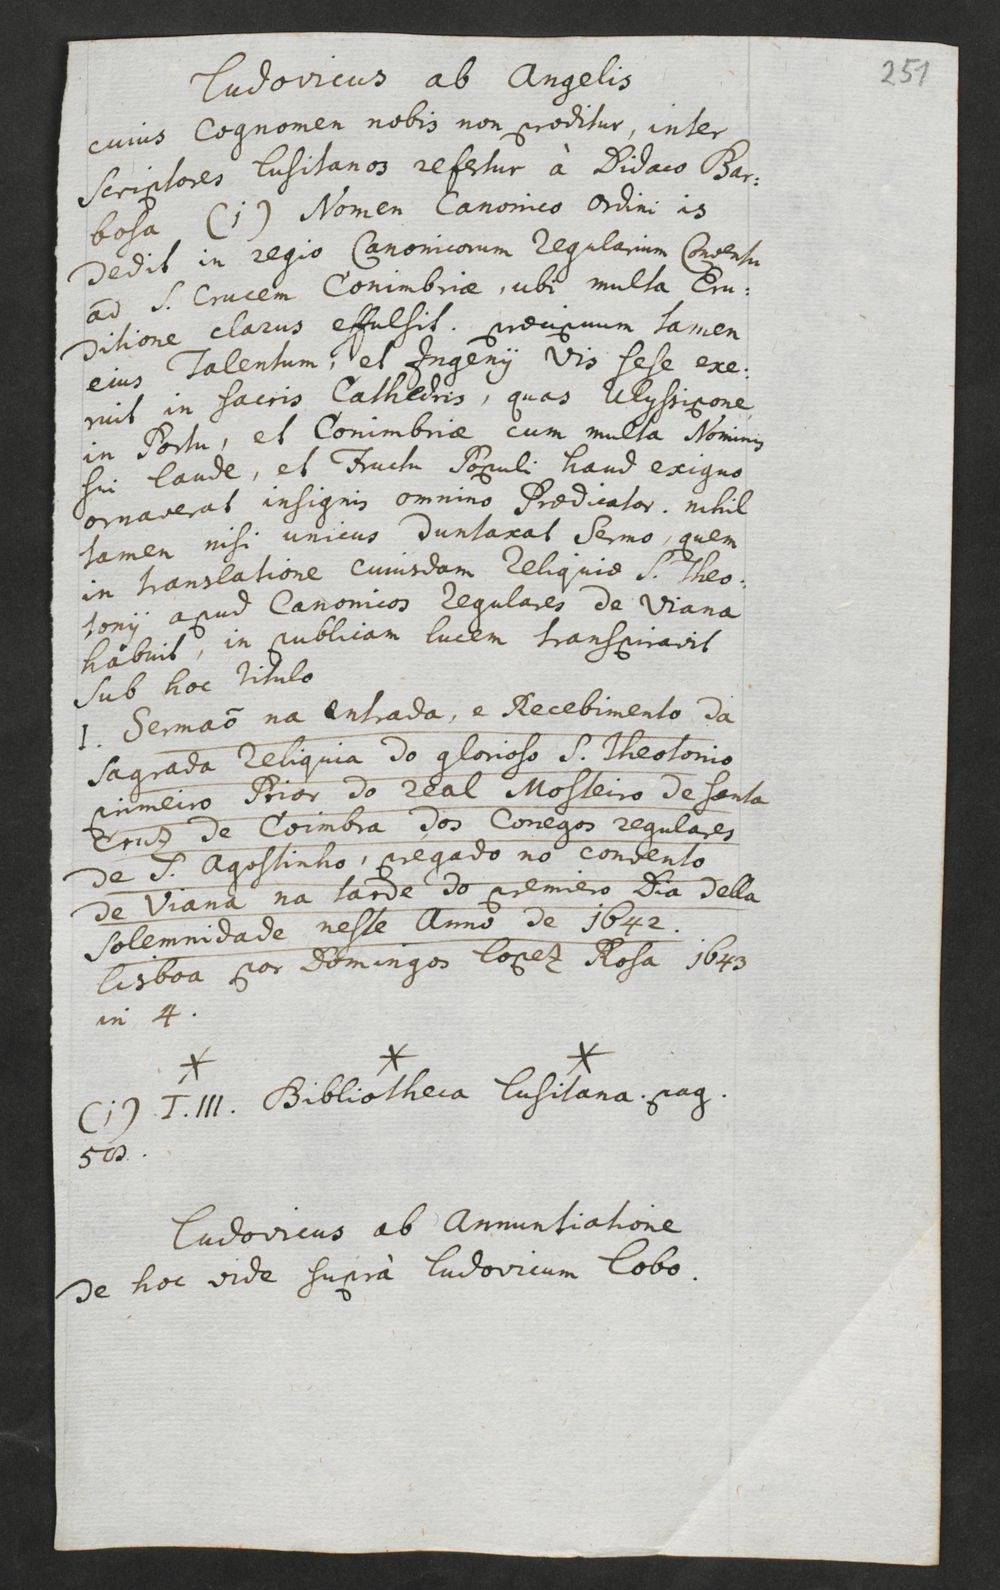 251
Ludovicus ab Angelis
cuius Cognomen nobis non proditur, inter
Scriptores Lusitanos refertur à Didaco Bar:
bosa (1) Nomen Canonico Ordini is
Dedit in regio Canonicorum Regularium Conventu
ad S. Crucem Conimbriæ, ubi multa Eru:
ditione clarus effulsit. præcipuum tamen
eius Talentum, et Ingenij Vis sese exe:
ruit in sacris Cathedris, quas Ulyssipone,
in Portu, et Conimbriæ cum multa Nominis
sui laude, et Fructu Populi haud exiguo
ornaverat insignis omnino Prædicator. nihil
tamen nisi unicus duntaxat Sermo, quem
in translatione cuiusdam Reliquiæ S. Theo:
tonij apud Canonicos Regulares de Viana
habuit, in publicam lucem transpiravit
Sub hoc Titulo
1. Sermaõ na entrada, e Recebimento da
Sagrada Reliquia do glorioso S. Theotonio
primeiro Prior do real Mosteiro de Santa
Cruz de Coimbra dos Conegos regulares
de S. Agostinho, pregado no convento
de Viana na tarde do premiero Dia della
Solemnidade neste Anno de 1642.
Lisboa por Domingos Lopez Rosa 1643
in 4.
* * *
(1) T. III. Bibliotheca Lusitana. pag.
Ludovicus ab Annuntiatione
De hoc vide suprà Ludovicum Lobo.